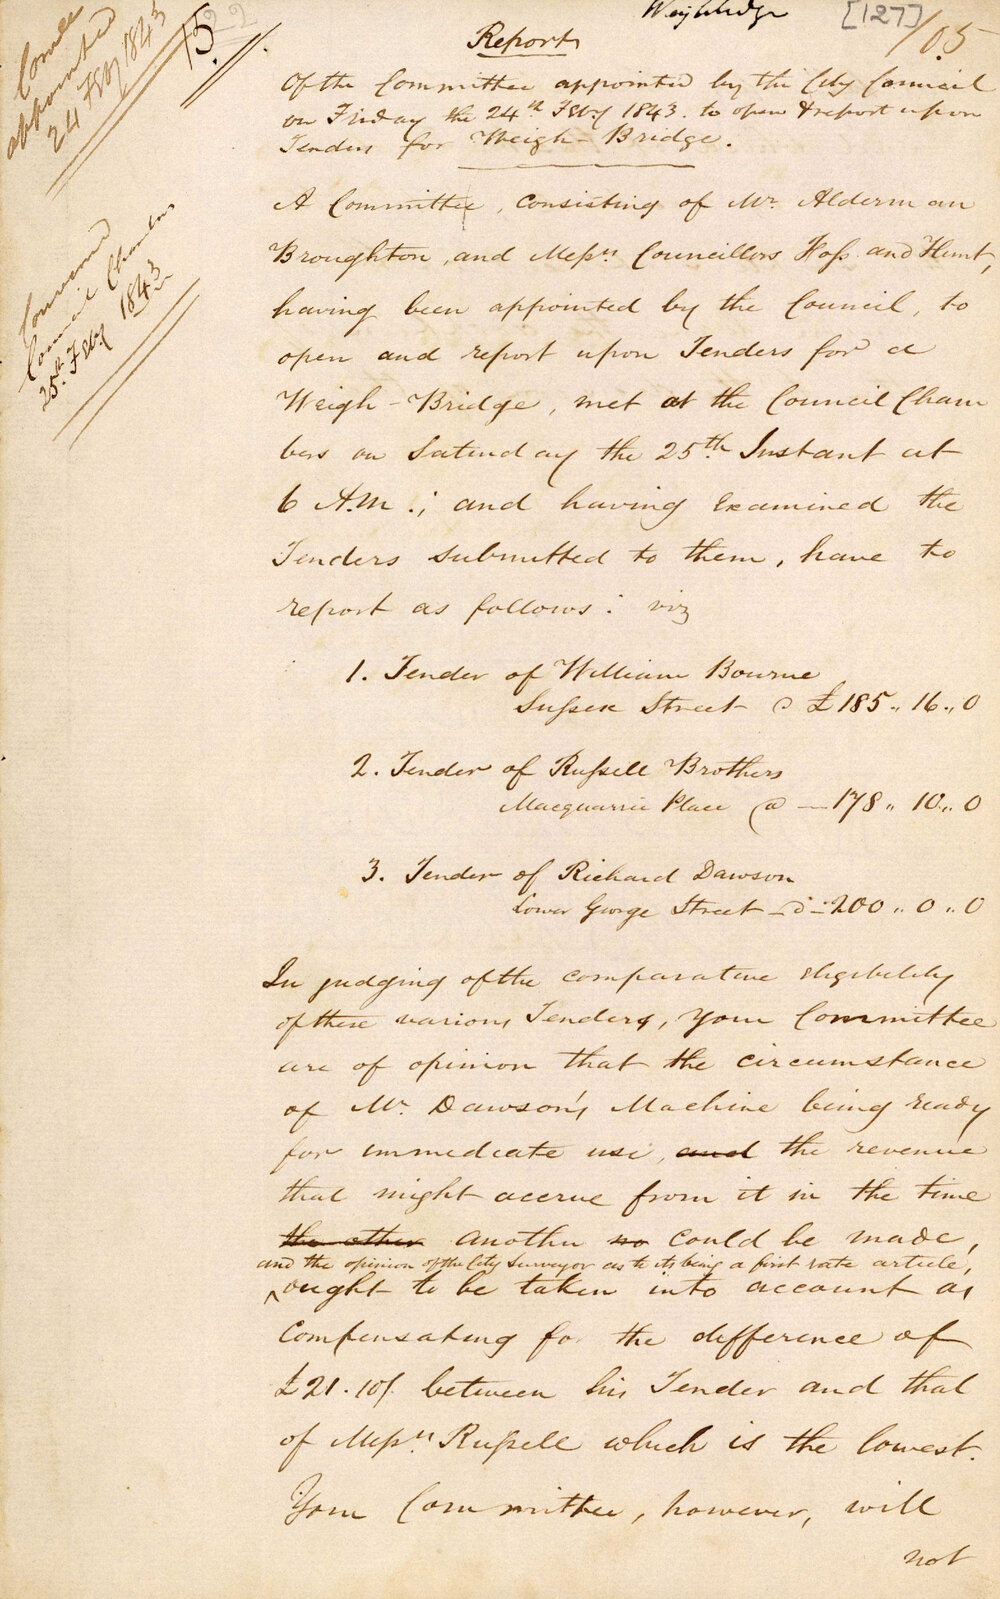 Weighbridge
[127]
/05
22
15.
Comee
appointed
24 Feby 1843
Report
Of the Committee appointed by the City Council
on Friday the 24th Feby 1843. to open & report upon
Tenders for Weigh-Bridge.
Convened
Council Chambers
25th Feby 1843
A Committee, consisting of Mr. Alderman
Broughton, and Messrs Councillors Hoss and Flint,
having been appointed by the Council, to
open and report upon Tenders for a
Weigh-Bridge, met at the Council Cham
bers on Saturday the 25th Instant at
6 A.M.; and having examined the
Tenders submitted to them, have to
report as follows: viz
1. Tender of William Bourne
Sussex Street @ £185 „ 16 „ 0
2. Tender of Russell Brothers
Macquarrie Place @ — 178 „ 10 „ 0
3. Tender of Richard Dawson
Lower George Street — do — 200 „ 0 „ 0
In judging of the comparative eligibility
of these various Tenders, your Committee
are of opinion that the circumstance
of Mr. Dawson's Machine being ready
for immediate use, and the revenue
that might accrue from it in the time
the other another no could be made,
and the opinion of the City Surveyor as to its being a first rate article,
ought to be taken into account as
compensating for the difference of
£21.10/. between his Tender and that
of Messrs Russell which is the lowest.
Your Committee, however, will
not